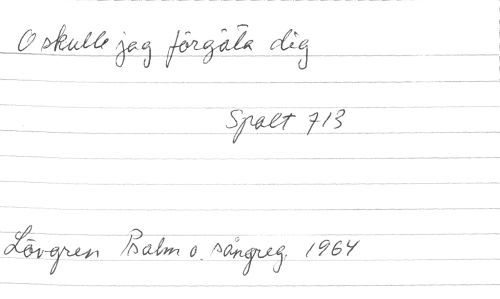 O skulle jag förgäta dig
Spalt 713
Lövgren Psalm o. sångreg. 1964